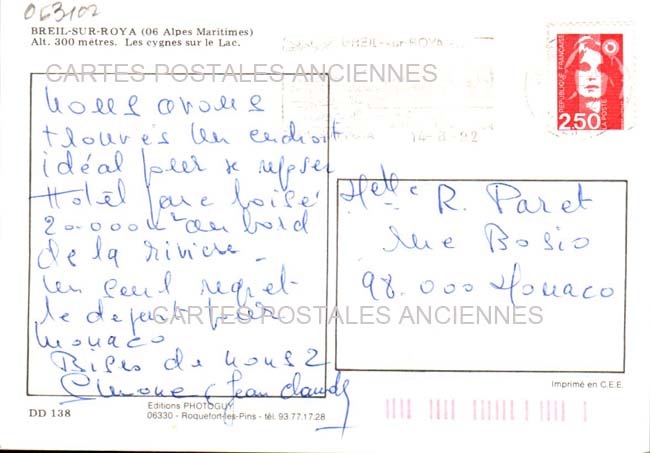 063102
BREIL-SUR-ROYA (06 Alpes Maritimes)
Alt. 300 mètres. Les cygnes sur le Lac.
BREIL-sur-ROYA
14-8 92
RÉPUBLIQUE FRANÇAISE
LA POSTE
2,50
CARTES POSTALES ANCIENNES
nous avons
trouvés un endroit
idéal pour se reposer
Hôtel parc boisé
20.000 m² au bord
de la rivière -
un seul regret
le départ pour
Monaco
Bises de nous 2
Simone, Jean claude
Melle R. Paret
rue Bosio
98.000 Monaco
CARTES POSTALES ANCIENNES
Imprimé en C.E.E.
DD 138
Editions PHOTOGUY
06330 - Roquefort-les-Pins - tél. 93.77.17.28